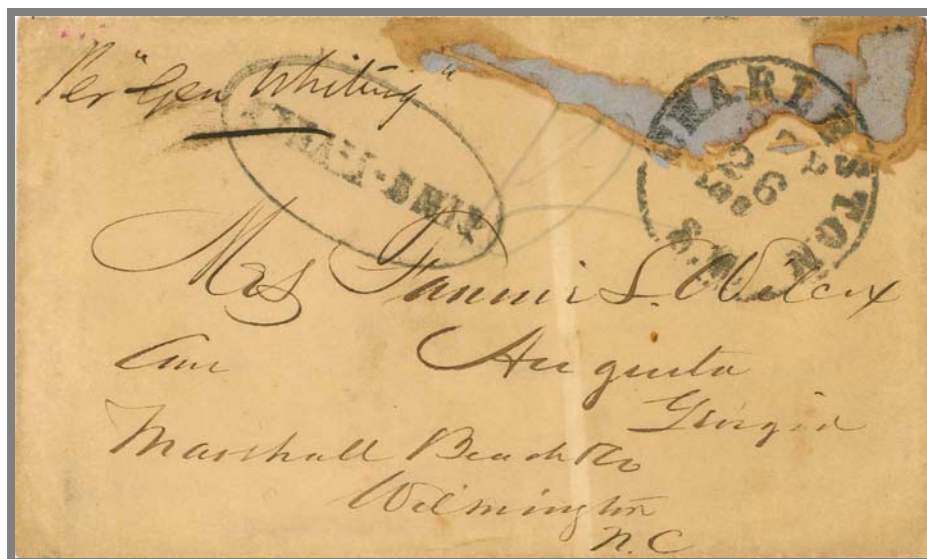 Per "Gen Whiting"
STEAM-SHIP
CHARLESTON
26
186
Mrs Fannie L. Wilcox
Care Augusta
Georgia
Marshall Beach & Co
Wilmington
N.C